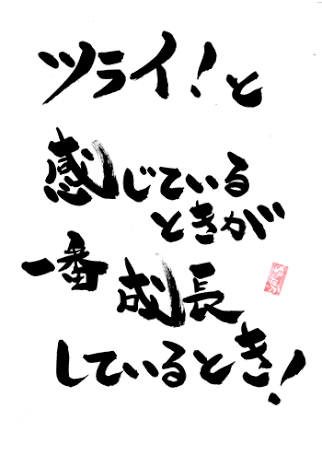 ツライ！と
感じている
ときが
一番
成長
しているとき！